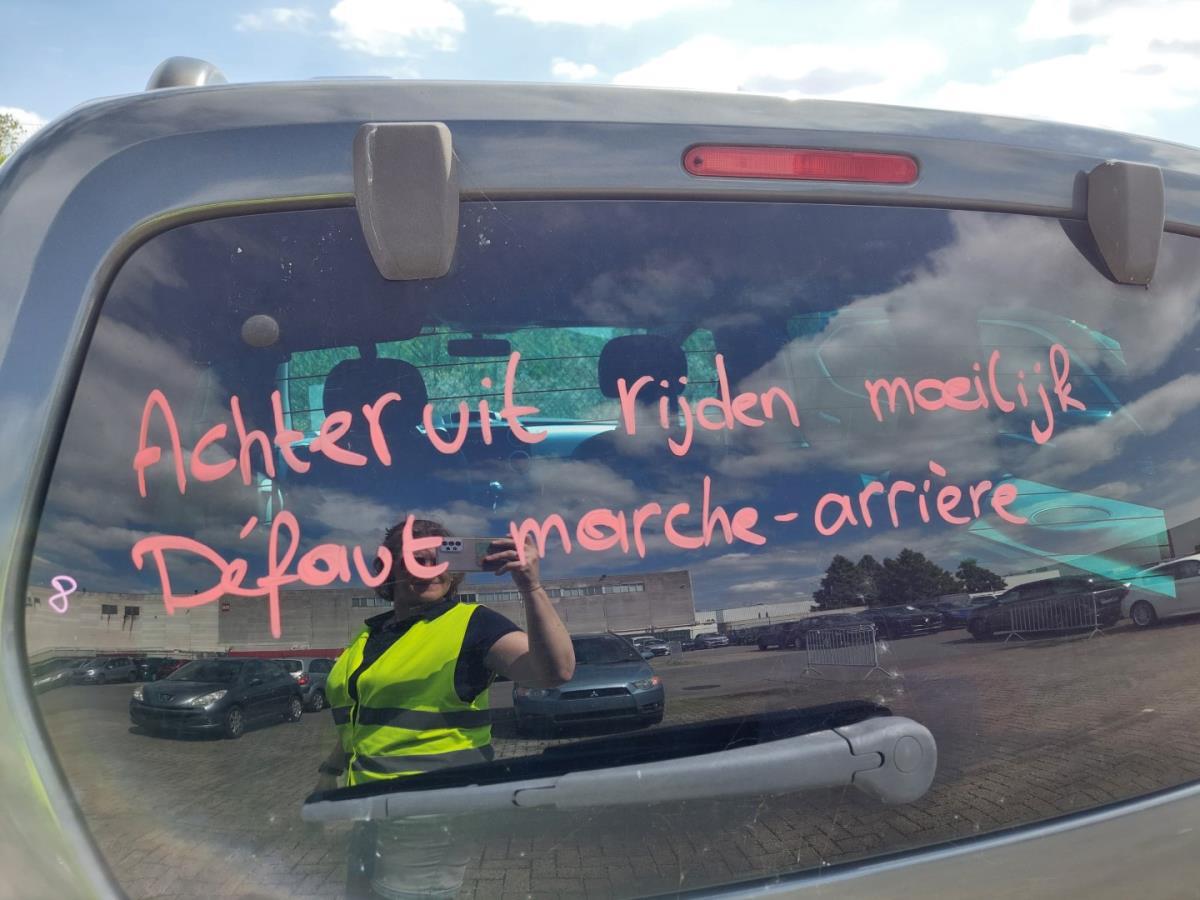 Achteruit rijden moeilijk
Défaut marche-arrière
8